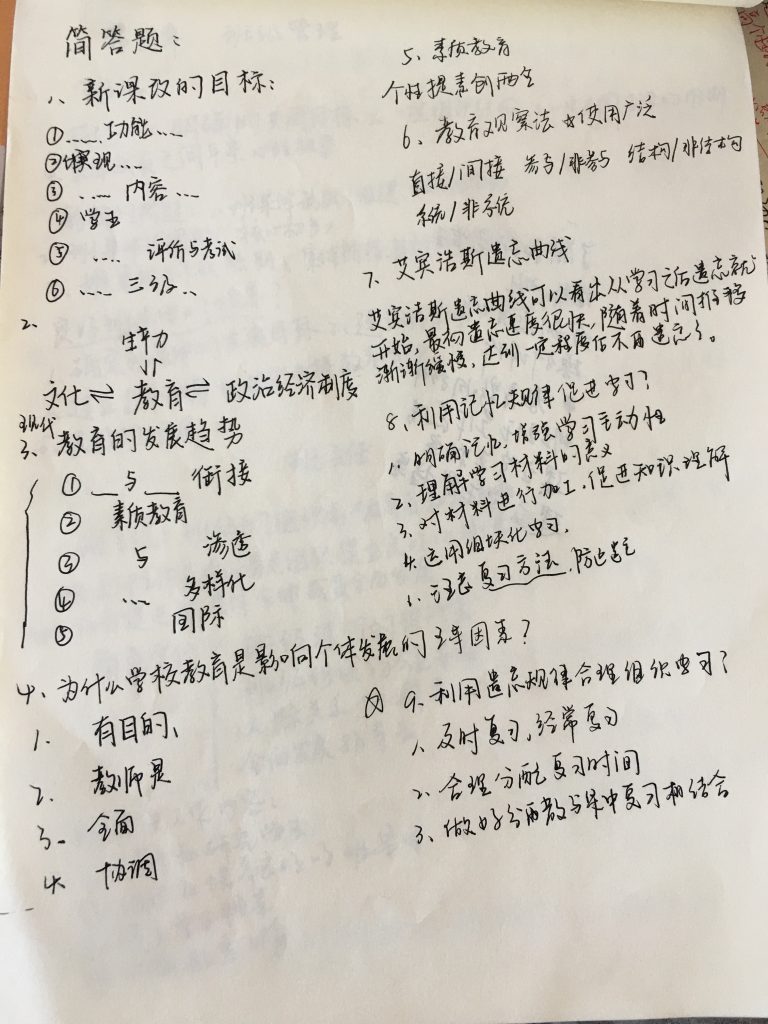 简答题:
1、新课改的目标:
① ..... 功能 ....
② 课程 ....
③ .... 内容 ...
④ 学生
⑤ .... 评价与考试
⑥ .... 三级 ..
2.
生产力
文化⇌ 教育⇌ 政治经济制度
现代
3、教育的发展趋势
① __与__ 衔接
② 素质教育
③ 与 渗透
④ ... 多样化
⑤ 国际
4、为什么学校教育是影响个体发展的主导因素?
1. 有目的、
2. 教师是
3. 全面
4. 协调
5、素质教育
个性提素创两全
6、教育观察法 使用广泛
直接/间接 参与/非参与 结构/非结构
系统/非系统
7、艾宾浩斯遗忘曲线
艾宾浩斯遗忘曲线可以看出从学习之后遗忘就
开始,最初遗忘速度很快,随着时间推移
渐渐缓慢,达到一定程度后不再遗忘了。
8、利用记忆规律促进学习?
1. 明确记忆,增强学习主动性
2. 理解学习材料的意义
3. 对材料进行加工,促进知识理解
4. 运用组块化学习.
5. 注意复习方法,防止遗忘
9、利用遗忘规律合理组织复习?
1. 及时复习,经常复习
2. 合理分配复习时间
3. 做好分散与集中复习相结合